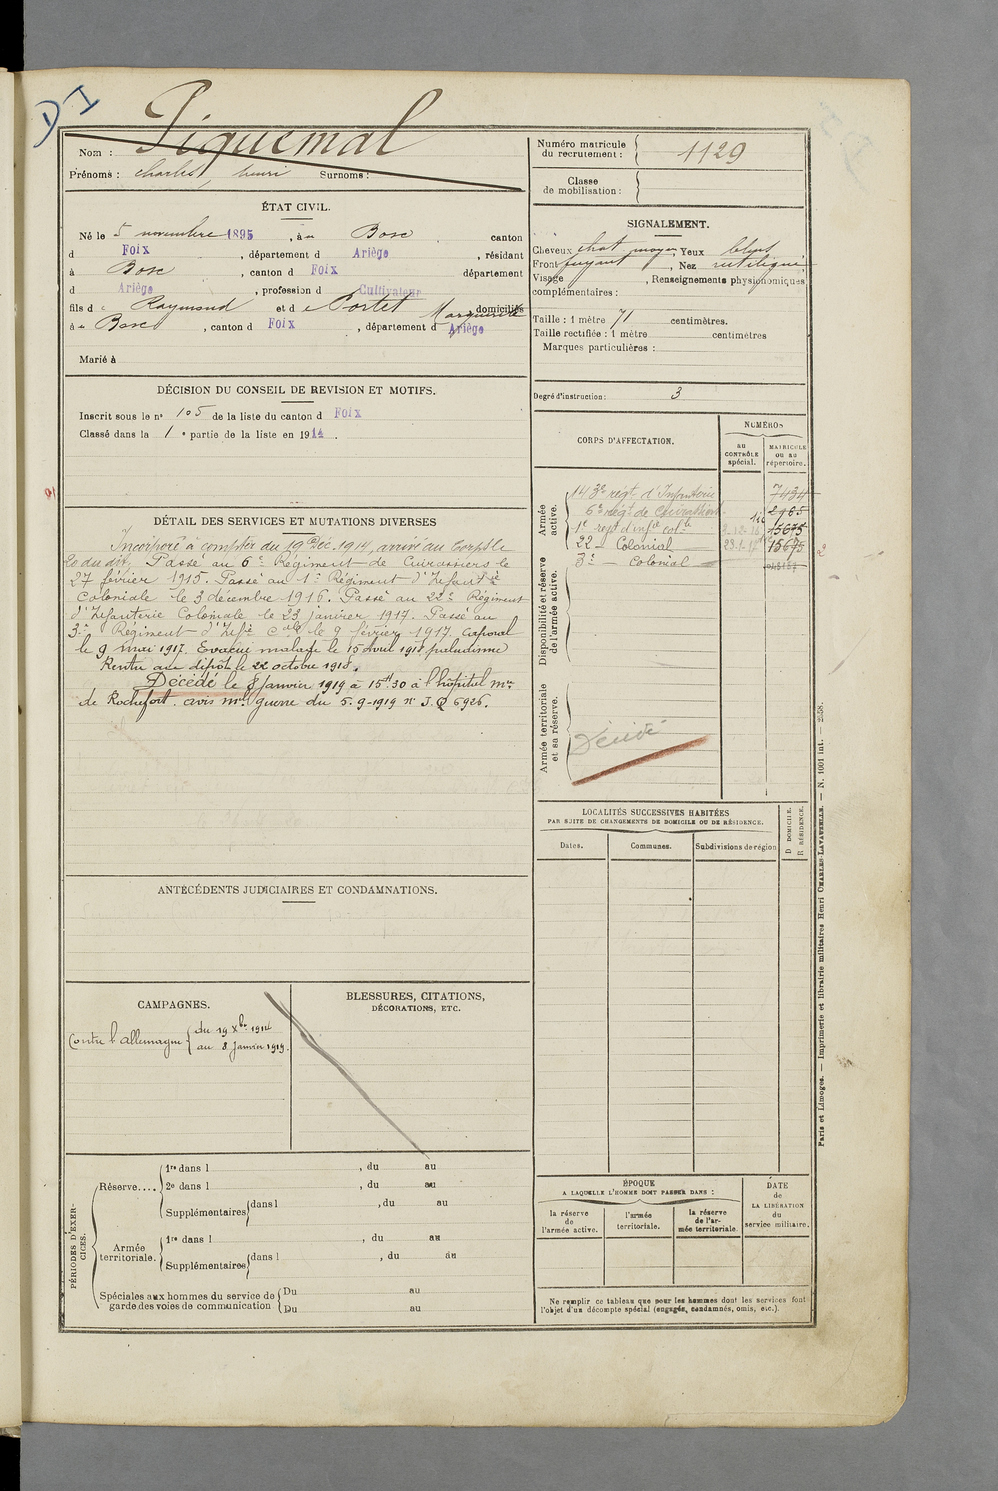 Piquemal
Nom :
Prénoms : Charles, henri Surnoms :
Numéro matricule
du recrutement : 1129
Classe
de mobilisation :
ÉTAT CIVIL.
Né le 5 novembre 1895, à Bosc canton
d Foix, département d Ariège, résidant
à Bosc, canton d Foix département
d Ariège, profession d Cultivateur
fils d Raymond et d Portet Marguerite domiciliés
à Bosc, canton d Foix, département d Ariège
Marié à
SIGNALEMENT.
Cheveux chat. moyen Yeux bleus
Front fuyant, Nez rectiligne
Visage , Renseignements physionomiques
complémentaires :
Taille : 1 mètre 71 centimètres.
Taille rectifiée : 1 mètre centimètres
Marques particulières :
Degré d'instruction : 3
DÉCISION DU CONSEIL DE REVISION ET MOTIFS.
Inscrit sous le n° 105 de la liste du canton d Foix
Classé dans la 1e partie de la liste en 1914.
DÉTAIL DES SERVICES ET MUTATIONS DIVERSES
Incorporé à compter du 19 Déc. 1914, arrivé au Corps le
20 du dit. Passé au 6e Régiment de Cuirassiers le
27 février 1915. Passé au 1er Régiment d'Infanterie
Coloniale le 3 décembre 1916. Passé au 22e Régiment
d'Infanterie Coloniale le 23 janvier 1917. Passé au
3e Régiment d'Infie Cale le 9 février 1917. Caporal
le 9 mai 1917. Evacué malade le 15 avril 1918 paludisme
Rentré au dépôt le 22 octobre 1918.
Décédé le 8 Janvier 1919 à 15H30 à l'hôpital mre
de Rochefort. avis mel guerre du 5-9-1919 n° J.Q 6926.
CORPS D'AFFECTATION.
NUMÉROS
au
CONTRÔLE
spécial.
MATRICULE
ou au
répertoire.
Armée
active.
143e régt d'Infanterie 7434
6e régt de Cuirassiers 2965
1e regt d'infie colle 2.12.16 15675
22 - Colonial 23.1.17 15675
3e - Colonial
Disponibilité et réserve
de l'armée active.
Armée territoriale
et sa réserve.
Décédé
LOCALITÉS SUCCESSIVES HABITÉES
PAR SUITE DE CHANGEMENTS DE DOMICILE OU DE RÉSIDENCE.
Dates.
Communes.
Subdivisions de région
D DOMICILE.
R RÉSIDENCE.
ANTÉCÉDENTS JUDICIAIRES ET CONDAMNATIONS.
CAMPAGNES.
Contre l'allemagne du 19 Xbre 1914
au 8 Janvier 1919.
BLESSURES, CITATIONS,
DÉCORATIONS, ETC.
PÉRIODES D'EXER-
CICES.
Réserve....
1re dans l , du au
2e dans l , du au
Supplémentaires dans l , du au
Armée
territoriale.
1re dans l , du au
Supplémentaires dans l , du au
Spéciales aux hommes du service de
garde des voies de communication
Du au
Du au
ÉPOQUE
A LAQUELLE L'HOMME DOIT PASSER DANS :
la réserve
de
l'armée active.
l'armée
territoriale.
la réserve
de l'ar-
mée territoriale.
DATE
de
LA LIBÉRATION
du
service militaire.
Ne remplir ce tableau que pour les hommes dont les services font
l'objet d'un décompte spécial (engagés, condamnés, omis, etc.).
Paris et Limoges. — Imprimerie et librairie militaires Henri CHARLES-LAVAUZELLE. — N. 1001 int. — 2858.